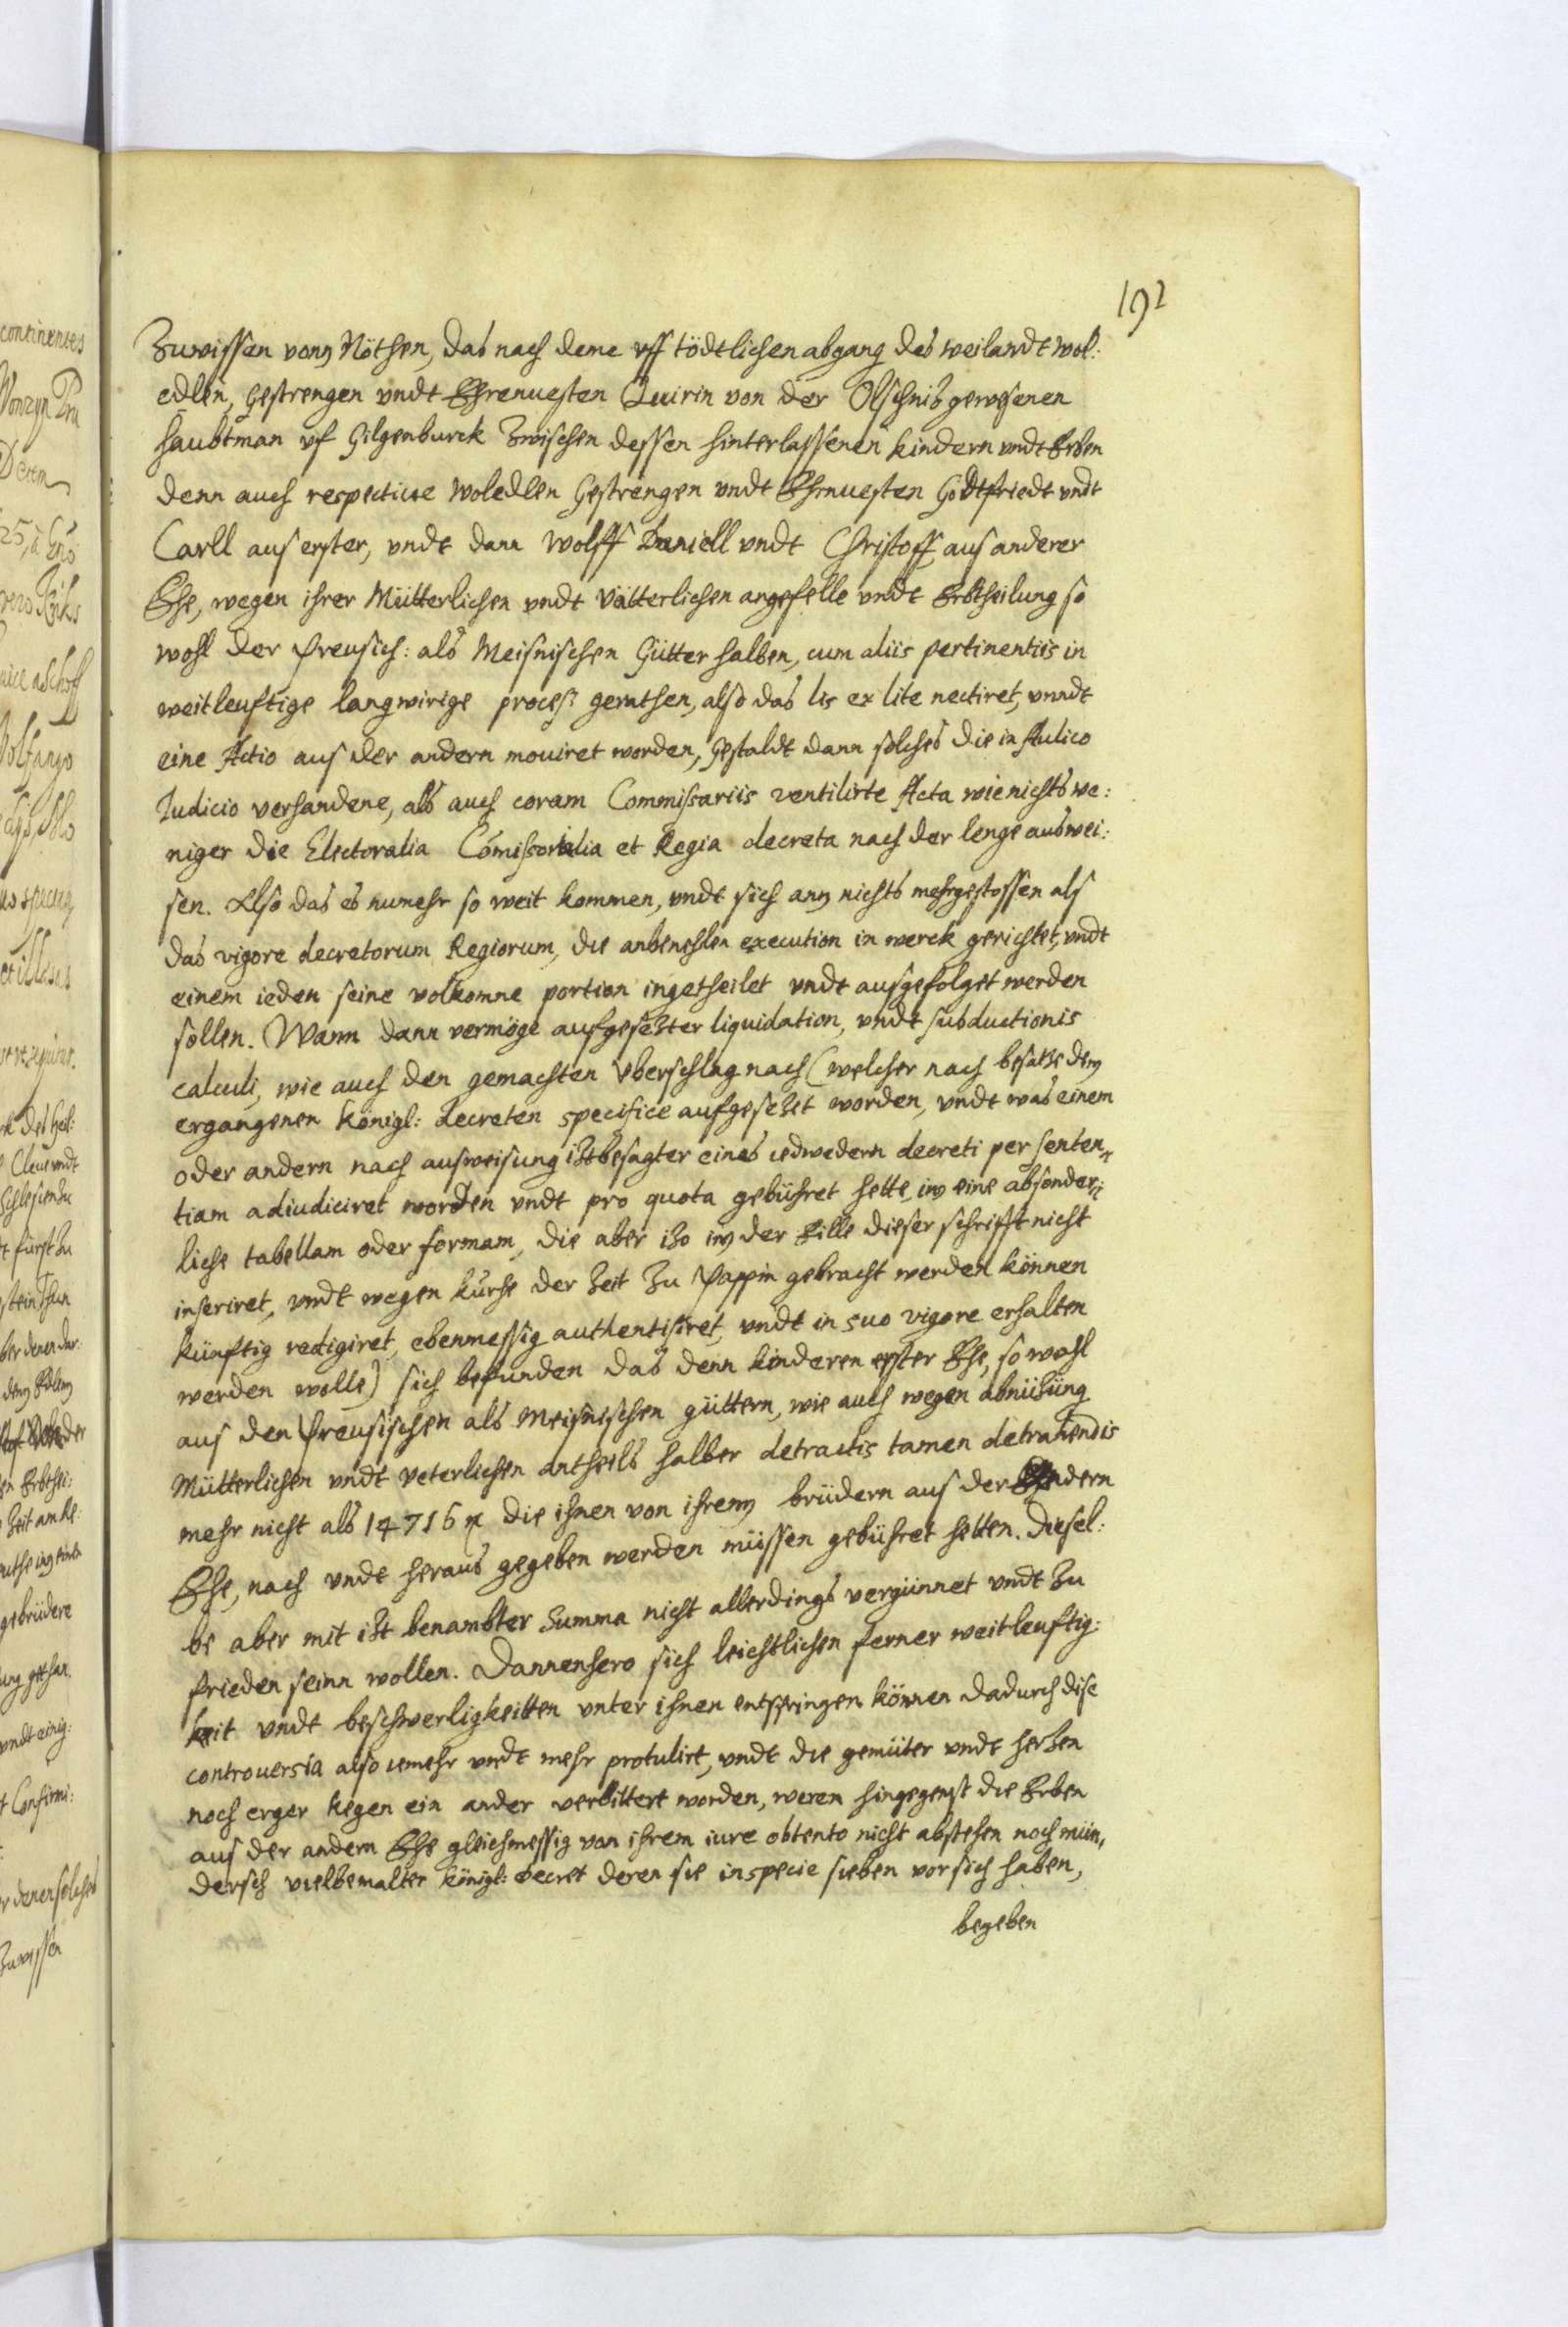 192
Zuwissen vonn Nöthen, das nach deme vff tödtlichen abgang des weilandt wol:
edlen, gestrengen vndt Ehrenuesten Quirin von der Olschnis gewesenen
haubtman vf Gilgenburck zwischen dessen hinterlassenen kindern vndt Erben
denn auch respective woledlen Gestrengen vndt Ehrnuesten Godtfriedt vndt
Carll aus erster, vndt dann Wolff Daniell vndt Christoff aus anderer
Ehe, wegen ihrer Mütterlichen vndt Vätterlichen angefelle vndt Erbtheilung so
wohl der Preusich: als Meisnischen Gütter halben, cum aliis pertinentiis in
weitleuftige langwirige proceß gerathen, also das lis ex lite nectiret, vnndt
eine Actio aus der andern mouiret worden, gestaldt dann solches die in Aulico
Iudicio verhandene, als auch coram Commissariis ventilirte Acta wie nichts we:
niger die Electoralia Comissorialia et Regia decreta nach der lenge auswei:
sen. Also das es numehr so weit kommen, vndt sich ann nichts mehr gestossen als
das vigore decretorum Regiorum, die anbeuohlen execution in werck gerichtet, vndt
einem ieden seine volkomne portion ingetheilet vndt ausgefolget werden
sollen. Wann dann vermöge aufgesetzter liquidation, vndt subductionis
calculi, wie auch den gemachten Vberschlag nach (welcher nach besatze dem
ergangenen Königl: decreten specifice aufgesetzet worden, vndt was einem
oder andern nach ausweisung itzbesagter eines iedwedern decreti per senten=
tiam adiudiciret worden vndt pro quota gebühret hette, im eine absonder=
liche tabellam oder formam, die aber itzo in der Eille dieser schrifft nicht
inseriret, vndt wegen kürtze der Zeit zu Pappir gebracht werden können
künftig redigiret, ebenmessig authentisiret, vndt in suo vigore erhalten
werden wolle) sich befunden das denn kinderen erster Ehe, so wohl
aus den Preusischen als Meisnischen güttern, wie auch wegen abnützüng
Mütterlichen vndt veterlichen antheils halber detractis tamen detrahendis
mehr nicht als 14716 die ihnen von ihrenn brüdern aus der Andern
Ehe, nach vndt heraus gegeben werden müssen gebühret hetten. Diesel:
be aber mit itzt benambter Summa nicht allerdings vergünnet vndt zu
frieden seinn wollen. Dannenhero sich leichtlichen ferner weitleuftig:
keit vndt beschwerligkeitten vnter ihnen entspringen können dadurch dise
controuersia also iemehr vndt mehr protulirt, vndt die gemüter vndt hertzen
noch erger kegen ein ander verbittert worden, weren hingegenst die Erben
aus der andern Ehe gleichmessig von ihrem iure obtento nicht abstehen noch min,
dersch vielbemalter Königl: decret deren sie in specie sieben vor sich haben,
begeben